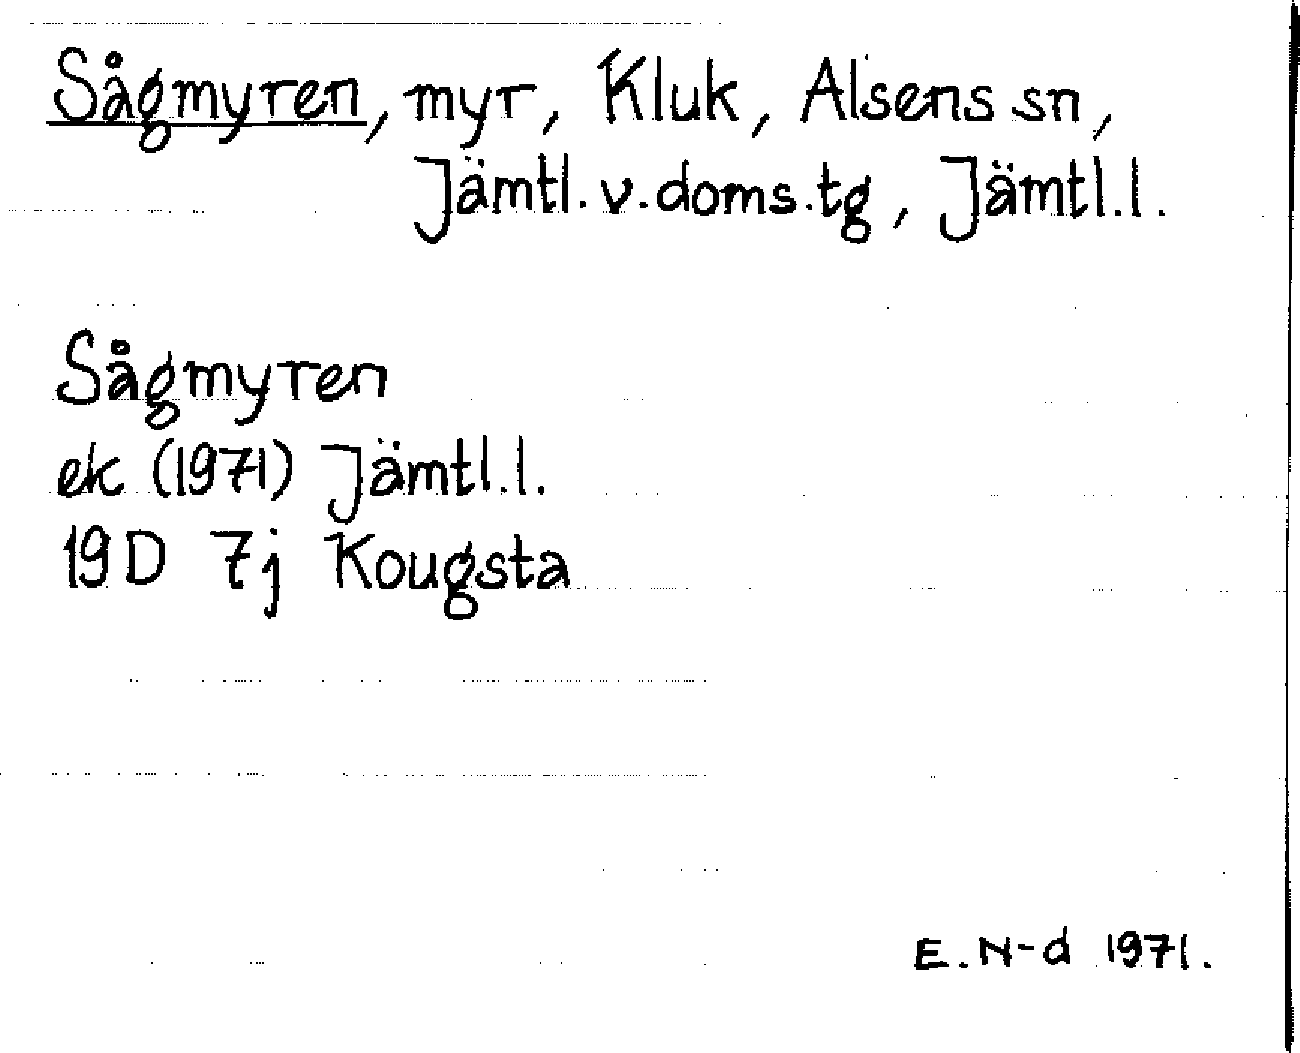 Sågmyren, myr, Kluk, Alsens sn,
Jämtl. v. doms. tg, Jämtl. l.
Sågmyren
ek (1971) Jämtl. l.
19 D 7j Kougsta
E. N-d 1971.